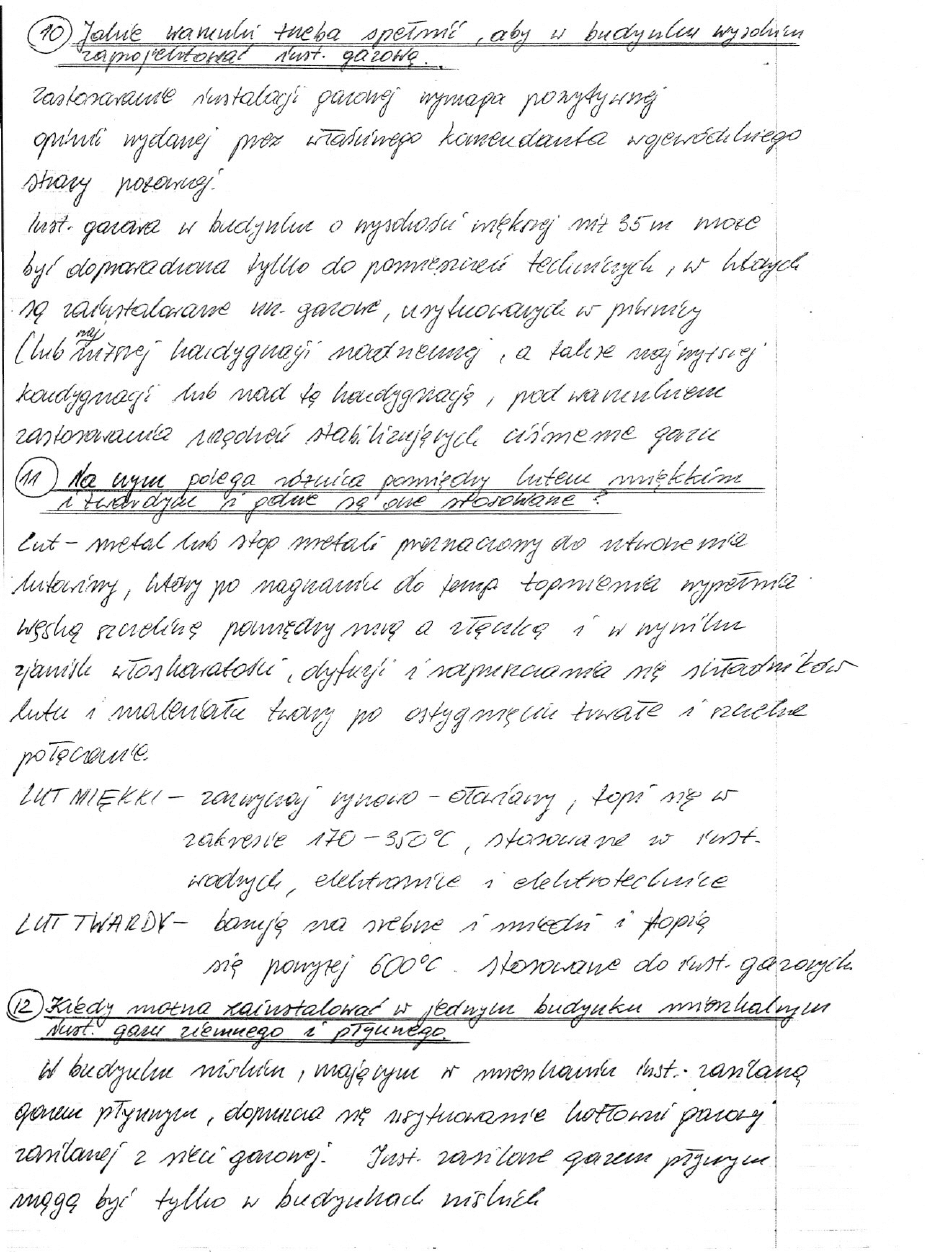 10 Jakie warunki trzeba spełnić, aby w budynku wysokim
zaprojektować inst. gazową.
Zastosowanie instalacji gazowej wymaga pozytywnej
opinii wydanej przez właściwego komendanta wojewódzkiego
straży pożarnej.
Inst. gazowa w budynku o wysokości większej niż 35 m może
być doprowadzona tylko do pomieszczeń technicznych, w których
są zainstalowane urz. gazowe, usytuowanych w piwnicy
(lub najniższej kondygnacji nadziemnej, a także najwyższej
kondygnacji lub nad tą kondygnacją, pod warunkiem
zastosowania urządzeń stabilizujących ciśnienie gazu
11 Na czym polega różnica pomiędzy lutem miękkim
i twardym i gdzie są one stosowane?
Lut – metal lub stop metali przeznaczony do utworzenia
lutowiny, który po nagrzaniu do temp topnienia wypełnia
wąską szczelinę pomiędzy rurą a złączką i w wyniku
zjawisk włoskowatości, dyfuzji i rozpuszczania się składników
lutu i materiału tworzy po ostygnięciu trwałe i szczelne
połączenie.
LUT MIĘKKI – zazwyczaj cynowo – ołowiany, topi się w
zakresie 170 – 350°C, stosowane w inst.
wodnych, elektronice i elektrotechnice
LUT TWARDY – bazują na srebrze i miedzi i topią
się powyżej 600°C. Stosowane do inst. gazowych.
12 Kiedy można zainstalować w jednym budynku mieszkalnym
inst. gazu ziemnego i płynnego.
W budynku niskim, mającym w mieszkaniu inst. zasilaną
gazem płynnym, dopuszcza się usytuowanie kotłowni gazowej
zasilanej z sieci gazowej. Inst. zasilane gazem płynnym
mogą być tylko w budynkach niskich